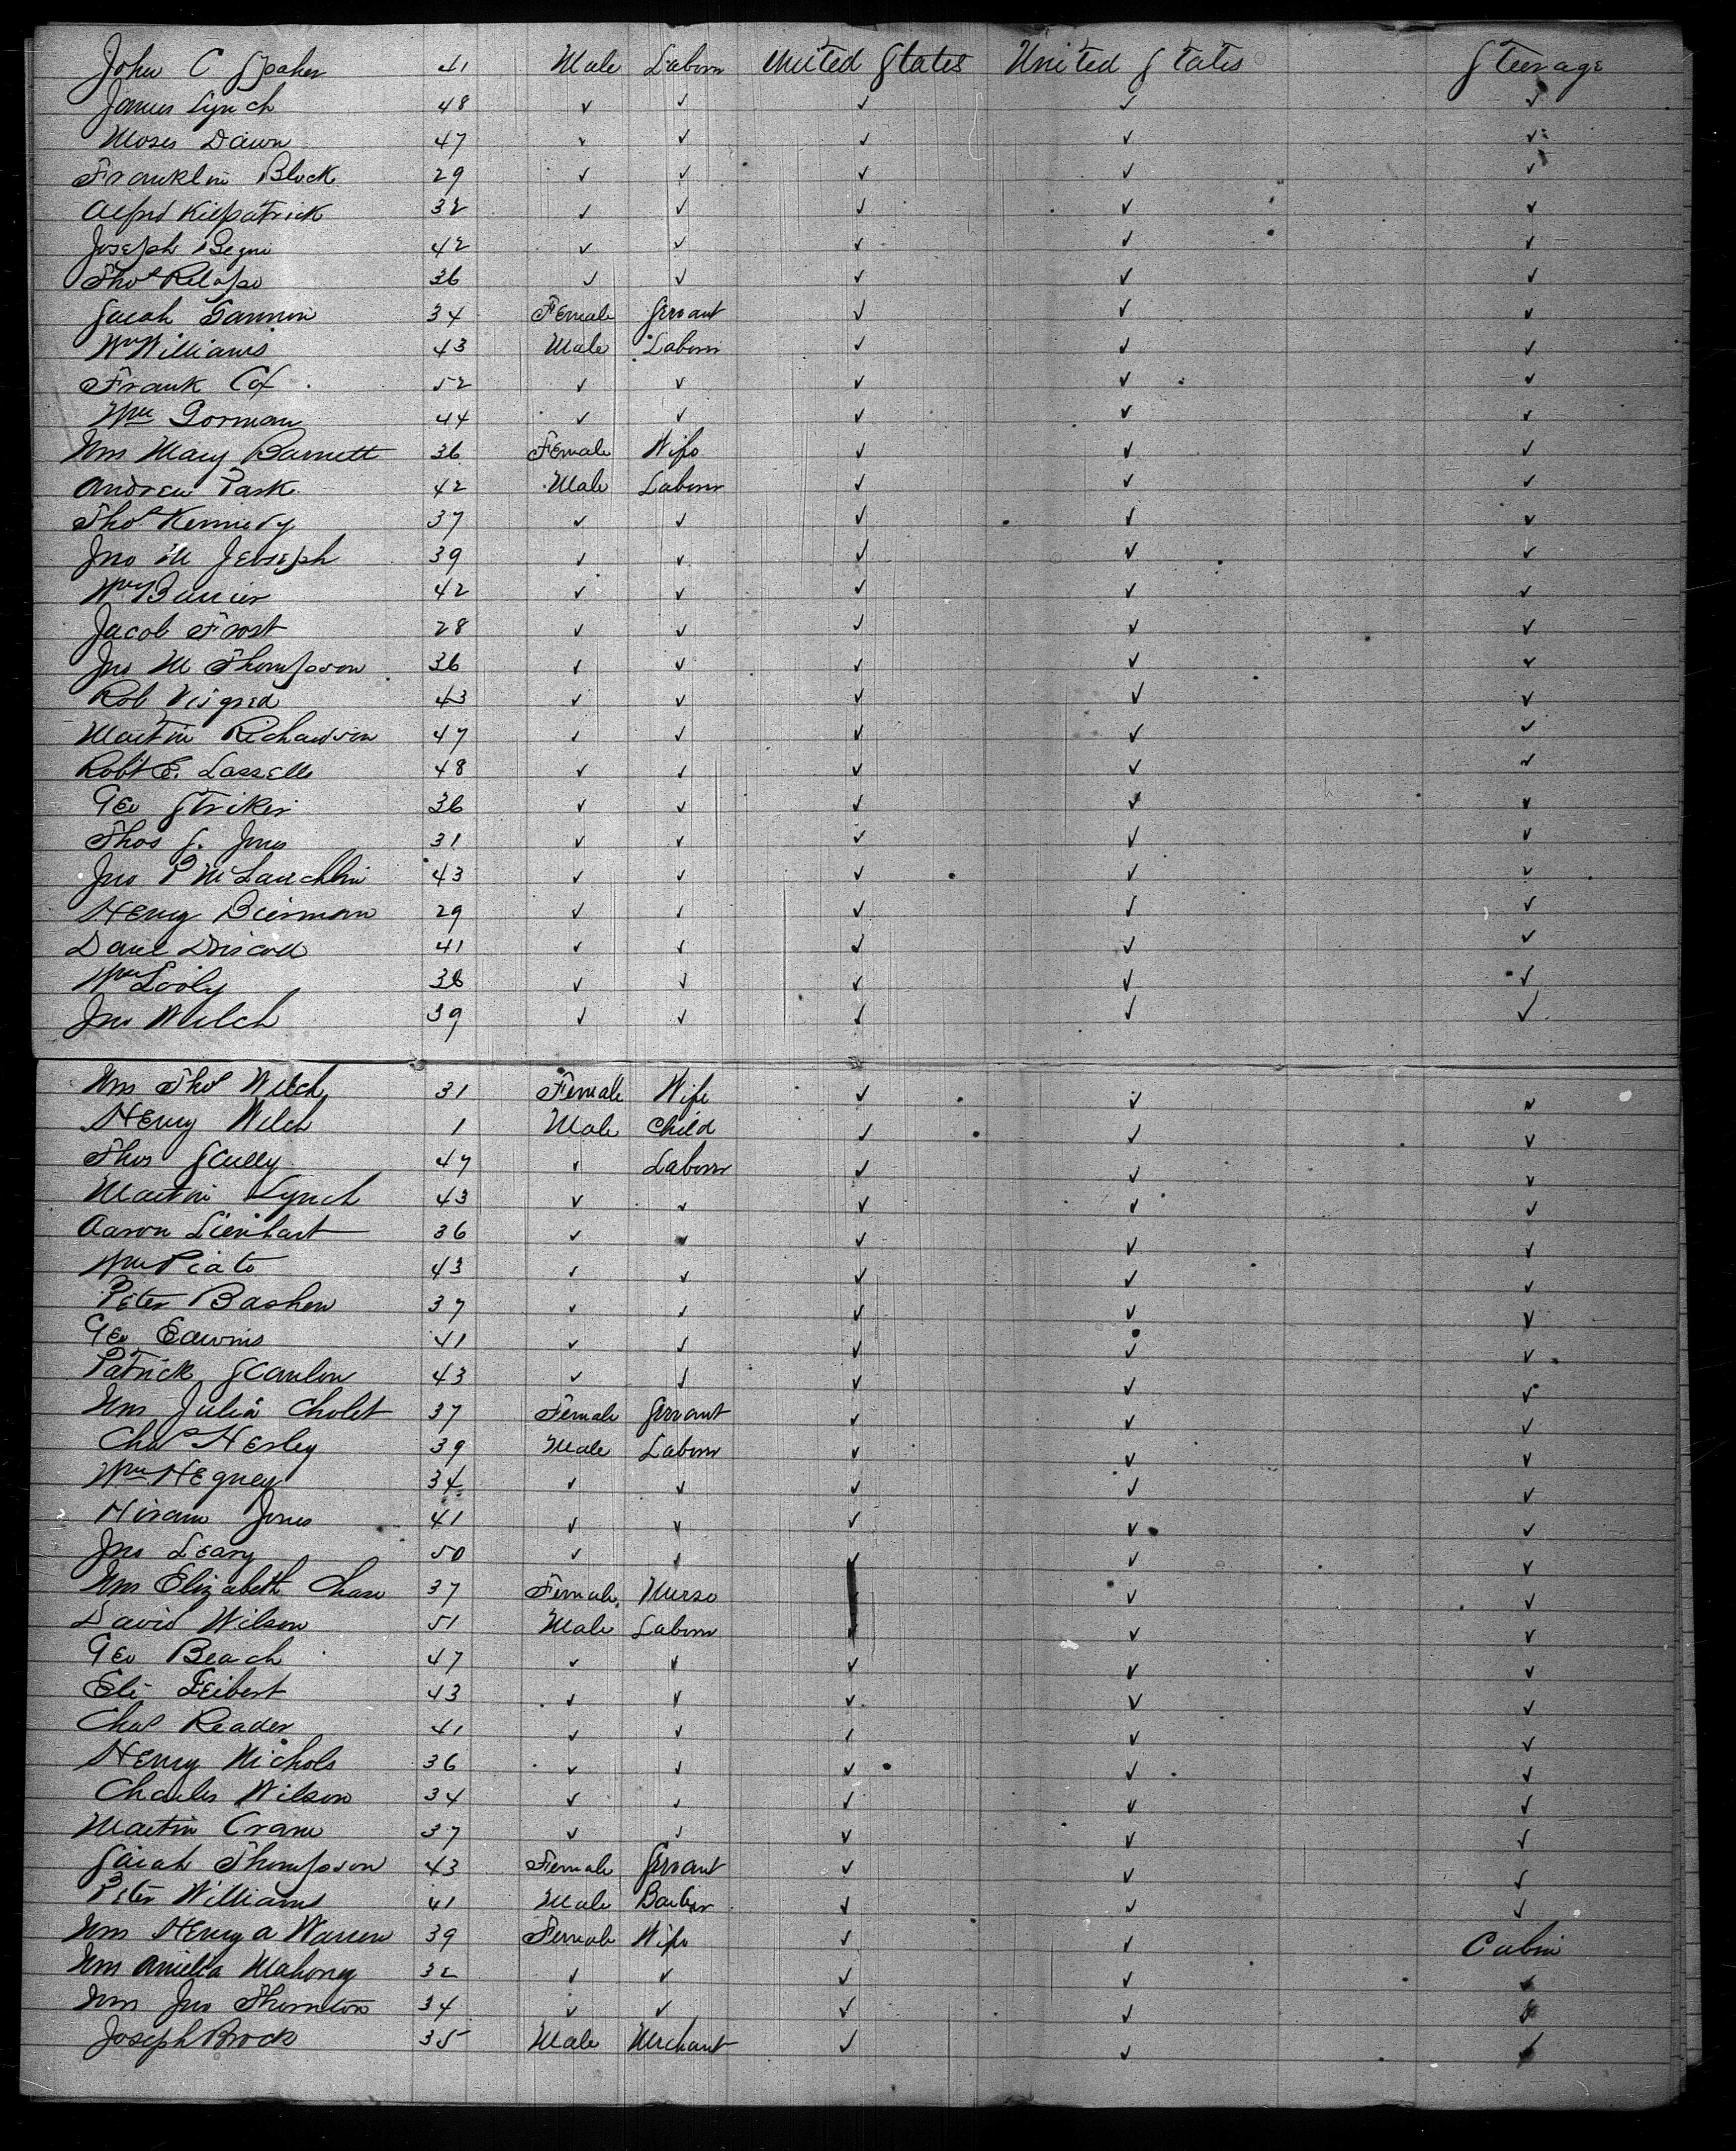 John C Spaher 41 Male Laborer United States United States Steerage
James Lynch 48 ✓ ✓ ✓ ✓ ✓
Moses Dawn 47 ✓ ✓ ✓ ✓ ✓
Franklin Block 29 ✓ ✓ ✓ ✓ ✓
Alfred Kilpatrick 32 ✓ ✓ ✓ ✓ ✓
Joseph 42 ✓ ✓ ✓ ✓ ✓
Thos 36 ✓ ✓ ✓ ✓ ✓
Sarah Gannon 34 Female Servant ✓ ✓ ✓
Wm Williams 43 Male Laborer ✓ ✓ ✓
Frank Cox 52 ✓ ✓ ✓ ✓ ✓
Wm Gorman 44 ✓ ✓ ✓ ✓ ✓
Mrs Mary Barnett 36 Female Wife ✓ ✓ ✓
Andrew Park 42 Male Laborer ✓ ✓ ✓
Thos Kennedy 37 ✓ ✓ ✓ ✓ ✓
Jno M 39 ✓ ✓ ✓ ✓ ✓
Wm 42 ✓ ✓ ✓ ✓ ✓
Jacob Frost 28 ✓ ✓ ✓ ✓ ✓
Jno M Thompson 36 ✓ ✓ ✓ ✓ ✓
Rob 43 ✓ ✓ ✓ ✓ ✓
Martin Richardson 47 ✓ ✓ ✓ ✓ ✓
Robt E. Lasselle 48 ✓ ✓ ✓ ✓ ✓
Geo Striker 36 ✓ ✓ ✓ ✓ ✓
Thos S. Jones 31 ✓ ✓ ✓ ✓ ✓
Jno P McLauchlin 43 ✓ ✓ ✓ ✓ ✓
Henry Bierman 29 ✓ ✓ ✓ ✓ ✓
Danl Driscoll 41 ✓ ✓ ✓ ✓ ✓
Wm Looly 38 ✓ ✓ ✓ ✓ ✓
Jno Welch 39 ✓ ✓ ✓ ✓ ✓
Mrs Thos Welch 31 Female Wife ✓ ✓ ✓
Henry Welch 1 Male Child ✓ ✓ ✓
Thos Scully 47 ✓ Laborer ✓ ✓ ✓
Martin Lynch 43 ✓ ✓ ✓ ✓ ✓
Aaron Lienhart 36 ✓ ✓ ✓ ✓ ✓
Wm Piato 43 ✓ ✓ ✓ ✓ ✓
Peter Bashen 37 ✓ ✓ ✓ ✓ ✓
Geo Edwins 41 ✓ ✓ ✓ ✓ ✓
Patrick Scanlon 43 ✓ ✓ ✓ ✓ ✓
Mrs Julia Cholet 37 Female Servant ✓ ✓ ✓
Chas Hesley 39 Male Laborer ✓ ✓ ✓
Wm Hegney 34 ✓ ✓ ✓ ✓ ✓
Hiram Jones 41 ✓ ✓ ✓ ✓ ✓
Jno Leary 50 ✓ ✓ ✓ ✓ ✓
Mrs Elizabeth Chase 37 Female Nurse ✓ ✓ ✓
David Wilson 51 Male Laborer ✓ ✓ ✓
Geo Beach 47 ✓ ✓ ✓ ✓ ✓
Eli Leibert 43 ✓ ✓ ✓ ✓ ✓
Chas Reader 41 ✓ ✓ ✓ ✓ ✓
Henry Nichols 36 ✓ ✓ ✓ ✓ ✓
Charles Wilson 34 ✓ ✓ ✓ ✓ ✓
Martin Crane 37 ✓ ✓ ✓ ✓ ✓
Sarah Thompson 43 Female Servant ✓ ✓ ✓
Peter Williams 41 Male Barber ✓ ✓ ✓
Mrs Henry A Warren 39 Female Wife ✓ ✓ Cabin
Mrs Amelia Mahoney 32 ✓ ✓ ✓ ✓ ✓
Mrs Jno Thornton 34 ✓ ✓ ✓ ✓ ✓
Joseph Brock 35 Male Merchant ✓ ✓ ✓